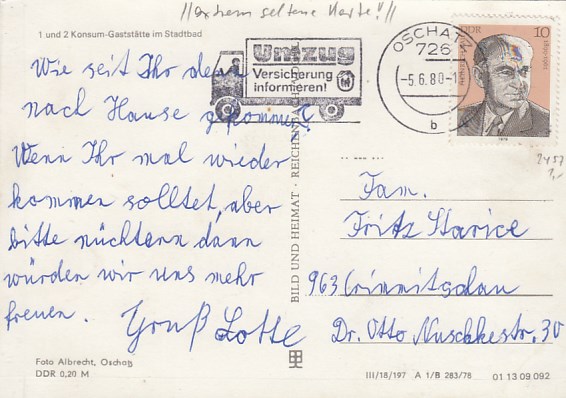 //extrem seltene Karte!//
1 und 2 Konsum-Gaststätte im Stadtbad
Umzug
Versicherung
informieren!
OSCHATZ
726
-5.6.80-1
b
DDR 10
1979
Wie seit Ihr denn
nach Hause gekommen?
Wenn Ihr mal wieder
kommen solltet, aber
bitte nüchtern dann
würden wir uns mehr
freuen. Gruß Lotte
BILD UND HEIMAT · REICHENBACH
2457
Fam.
Fritz Starice
963 Crimmitschau
Dr. Otto Nuschkestr. 30
Foto Albrecht, Oschatz
DDR 0,20 M
III/18/197 A 1/B 283/78 01 13 09 092